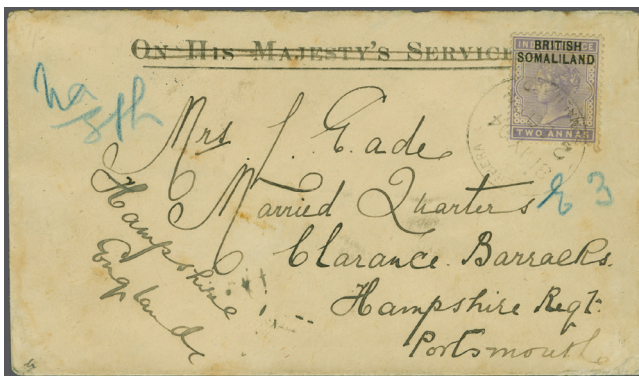 On His Majesty's Service
INDIA
BRITISH
SOMALILAND
TWO ANNAS
Mrs J. Eade
Married Quarters E 3
Clarance Barracks.
Hampshire Regt.
Portsmouth
Hampshire
England